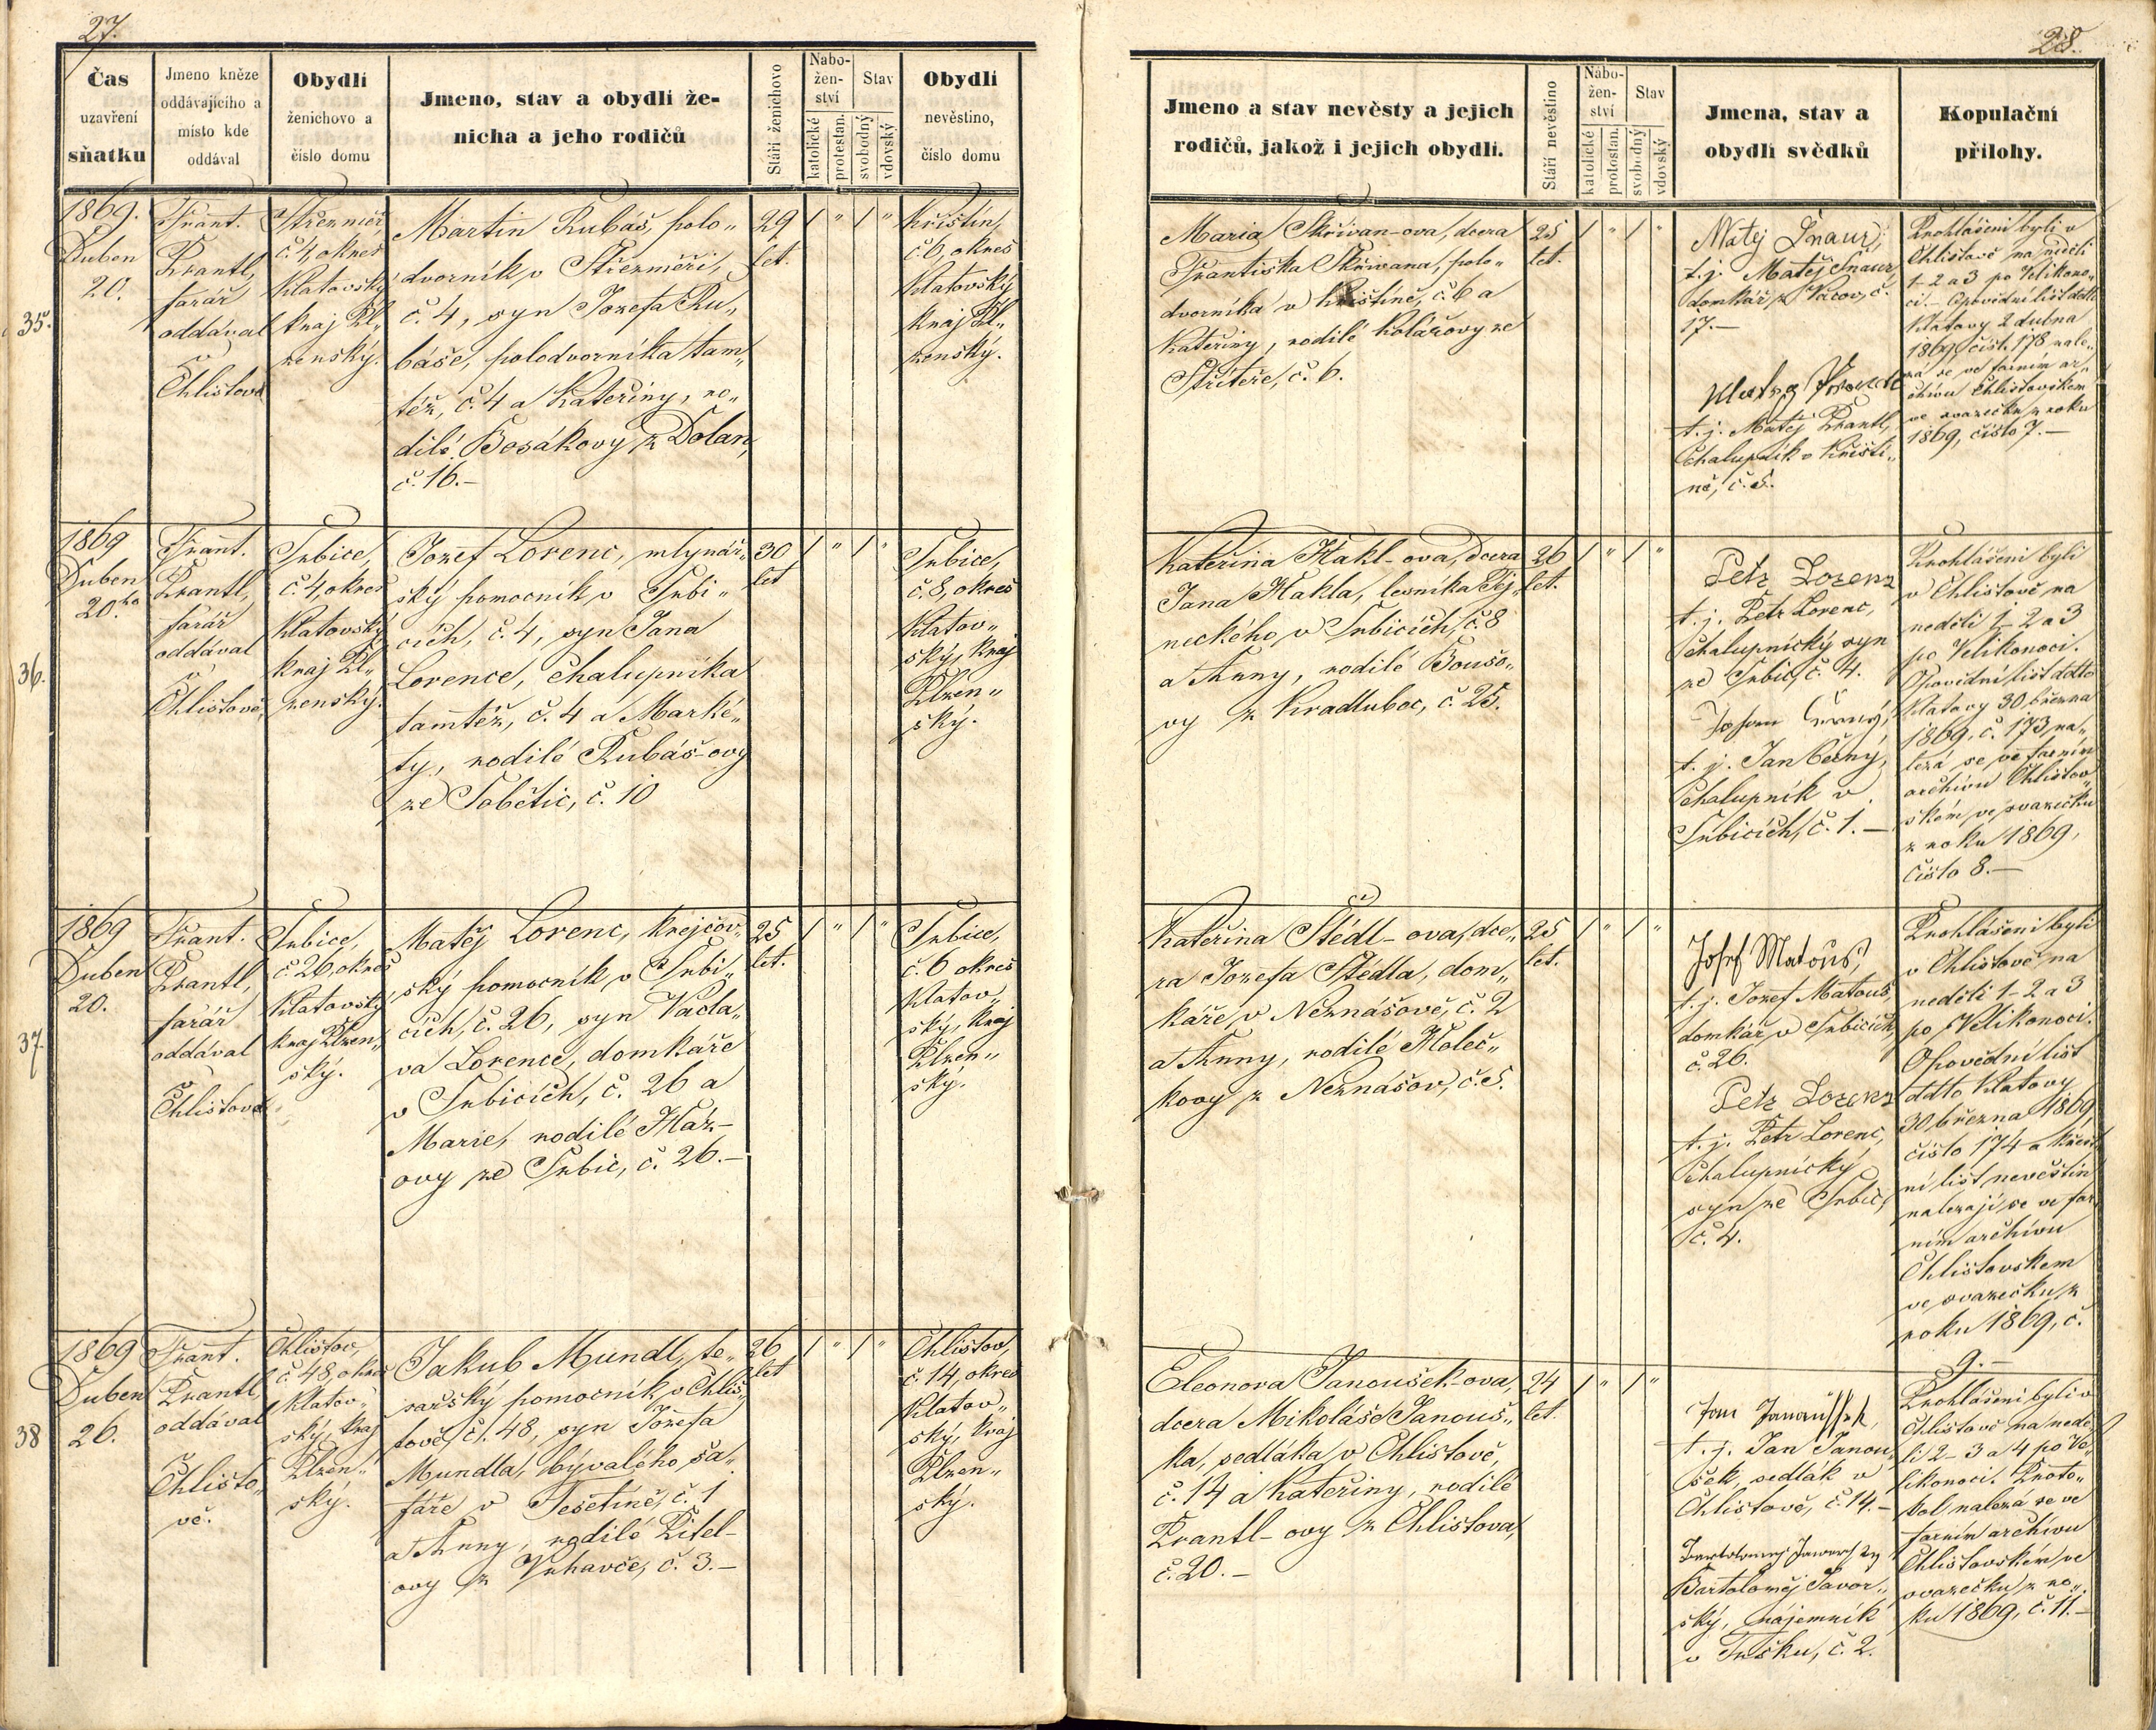 27.
Čas
uzavření
sňatku
Jmeno kněze
oddávajícího a
místo kde
oddával
Obydlí
ženichovo a
číslo domu
Jmeno, stav a obydlí že-
nicha a jeho rodičů
Stáří ženichovo
Nábo-
žen-
ství
katolické
protestan.
Stav
svobodný
vdovský
Obydlí
nevěstino,
číslo domu
35.
1869.
Duben
20.
Frant.
Prantl,
farář
oddával
v
Chlistově
Střezměř,
č. 4, okres
Klatovský
kraj Pl„
zenský.
Martin Rubáš, polo„
dvorník v Střezměři,
č. 4, syn Jozefa Ru„
báše, polodvorníka tam„
též, č. 4 a Kateřiny, ro„
dilé Bosákovy z Dolan,
č. 16.–
29
let.
/ „ / „
Křištín,
č. 6, okres
Klatovský
kraj Pl„
zenský.
36.
1869
Duben
20ho
Frant.
Prantl,
farář
oddával
v
Chlistově,
Srbice,
č. 4, okres
Klatovský
kraj Pl„
zenský.
Jozef Lorenc, mlynář„
ský pomocník v Srbi„
cích, č. 4, syn Jana
Lorence, chalupníka
tamtéž, č. 4 a Marké„
ty, rodilé Rubáš-ovy
ze Sobětic, č. 10
30
let
/ „ / „
Srbice,
č. 8, okres
Klatov„
ský, kraj
Plzen„
ský.
37
1869
Duben
20.
Frant.
Prantl,
farář
oddával
v
Chlistově
Srbice,
č. 26, okres
Klatovský
kraj Plzen„
ský.
Matěj Lorenc, krejčov„
ský pomocník v Srbi„
cích, č. 26, syn Václa„
va Lorence, domkáře
v Srbicích, č. 26 a
Marie, rodilé Ház-
ovy ze Srbic, č. 26.–
25
let.
/ „ / „
Srbice,
č. 6 okres
Klatov„
ský, kraj
Plzen„
ský.
38
1869
Duben
26.
Frant.
Prantl,
oddával
v
Chlisto„
vě.
Chlistov,
č. 48, okres
Klatov„
ský, kraj
Plzen„
ský.
Jakub Mundl, te„
sařský pomocník v Chlis„
tově, č. 48, syn Jozefa
Mundla, bývalého ša„
fáře v Tešetíně, č. 1
a Anny, rodilé Pitel-
ovy z Vrhavče, č. 3.–
26
let
/ „ / „
Chlistov,
č. 14, okres
Klatov„
ský, kraj
Plzen„
ský.
28.
Jmeno a stav nevěsty a jejich
rodičů, jakož i jejich obydlí.
Stáří nevěstino
Nábo-
žen-
ství
katolické
protestan.
Stav
svobodný
vdovský
Jmena, stav a
obydlí svědků
Kopulační
přílohy.
Maria Skřivan-ova, dcera
Františka Skřivana, polo„
dvorníka v Křištíně, č. 6 a
Kateřiny, rodilé Kolářovy ze
Stříteře, č. 6.
25
let.
/ „ / „
Matěj Šnaur,
t. j. Matěj Šnaur,
domkář z Vacov, č.
17.–
t. j. Matěj Prantl,
chalupník v Křišti„
ně, č. 5.
Prohlášeni byli v
Chlistově na neděli
1–2 a 3 po Velikono„
ci.– Opovědní list ddto
Klatovy 2 dubna
1869, čísl. 178 nale„
zá se ve farním ar„
chivu Chlistovskem
ve svazečku z roku
1869, číslo 7.–
Kateřina Hakl-ova, dcera
Jana Hakla, lesníka Týj„
neckého v Srbicích, č. 8
a Anny, rodilé Boušo„
vy z Kradluboc, č. 25.
26
let.
/ „ / „
Petr Lorenz
t. j. Petr Lorenc,
chalupnický syn
ze Srbic, č. 4.
t. j. Jan Černý,
chalupník v
Srbicích, č. 1.–
Prohlášeni byli
v Chlistově na
neděli 1–2 a 3
po Velikonoci.
Opovědní list ddto
Klatovy 30 března
1869, č. 173 na„
lezá se ve farním
archivu Chlistov„
ském ve svazečku
z roku 1869,
číslo 8.–
Kateřina Štědl-ova, dce„
ra Jozefa Štědla, dom„
káře v Neznášově, č. 2
a Anny, rodilé Holeč„
kovy z Neznášov, č. 5.
25
let.
/ „ / „
Josef Matouš,
t. j. Jozef Matouš,
domkář v Srbicích,
č. 26.
Petr Lorenz
t. j. Petr Lorenc,
chalupnický
syn ze Srbic,
č. 4.
Prohlášeni byli
v Chlistově na
neděli 1–2 a 3
po Velikonoci.
Opovědní list
ddto Klatovy
30 března 1869,
číslo 174 a křest„
ní list nevěstin
nalezají se ve far„
ním archivu
Chlistovskem
ve svazečku z
roku 1869, č.
9.–
Eleonora Janoušek-ova,
dcera Mikoláše Janouš„
ka, sedláka v Chlistově,
č. 14 a Kateřiny, rodilé
Prantl-ovy z Chlistova,
č. 20.–
24
let.
/ „ / „
t. j. Jan Janou„
šek, sedlák v
Chlistově, č. 14.–
Bartoloměj Javor„
ský, nájemník
v Trsku, č. 2.
Prohlášeni byli v
Chlistově na nedě„
li 2–3 a 4 po Ve„
likonoci. Proto„
kol nalezá se ve
farním archivu
Chlistovském ve
svazečku z ro„
ku 1869, č. 11.–